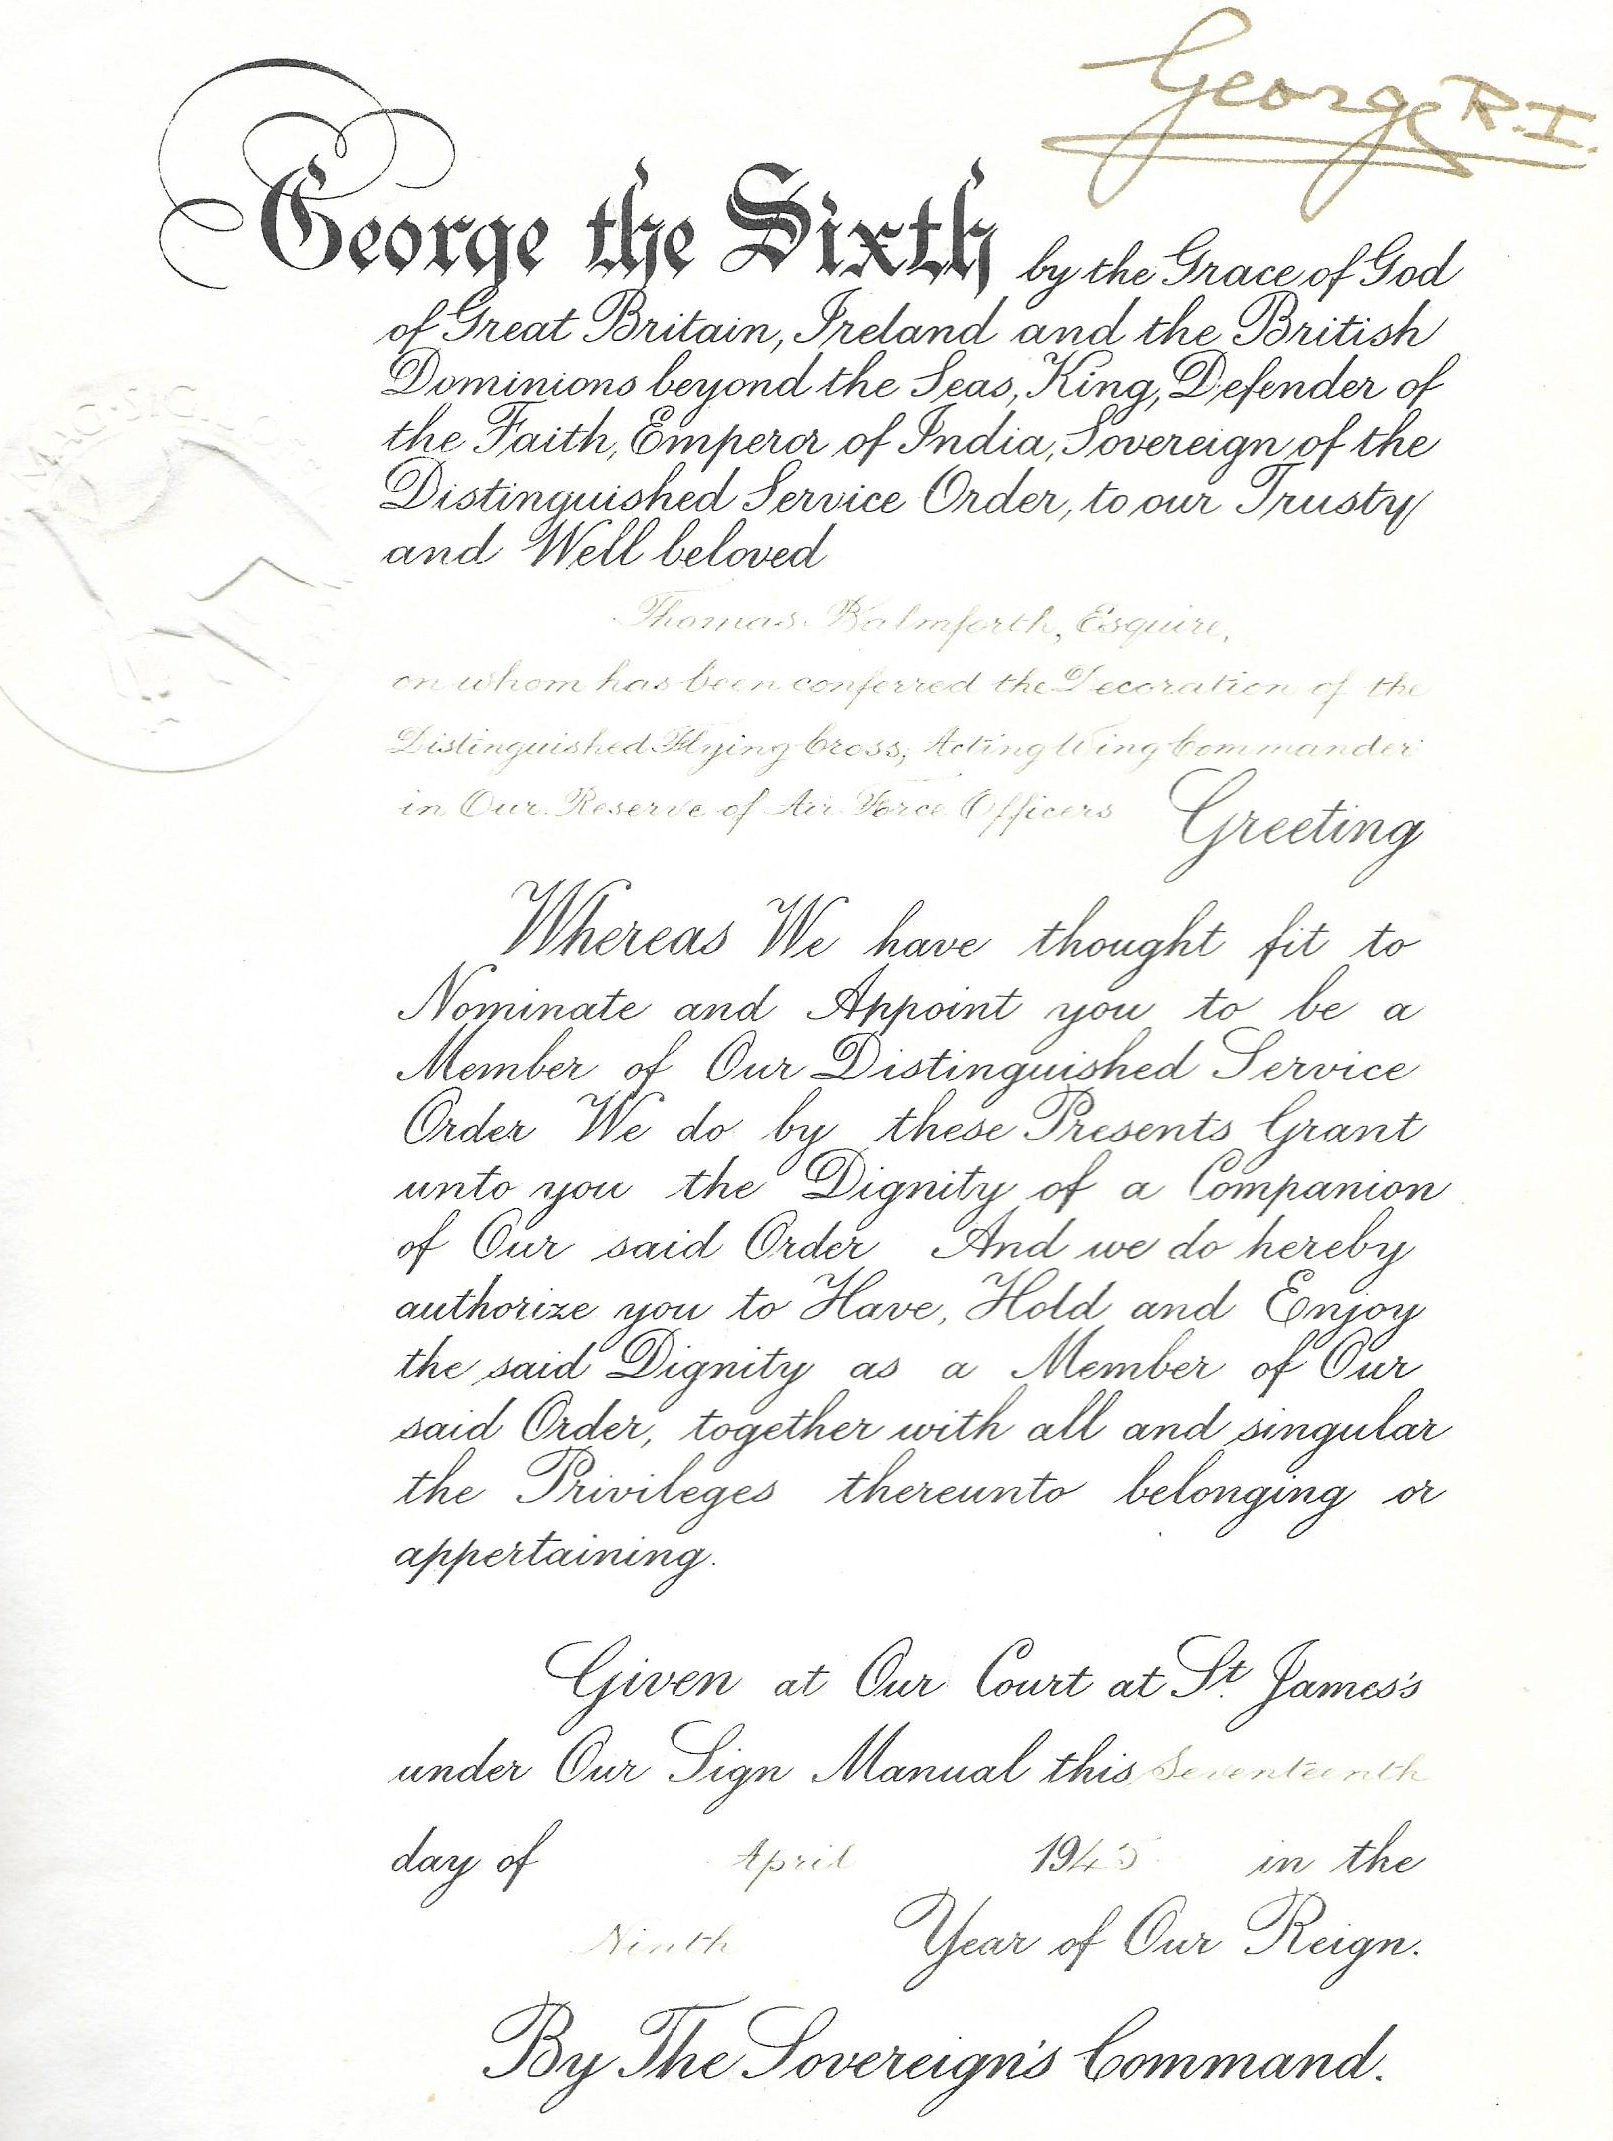 George R.I.
George the Sixth by the Grace of God
of Great Britain, Ireland and the British
Dominions beyond the Seas, King, Defender of
the Faith, Emperor of India, Sovereign of the
Distinguished Service Order, to our Trusty
and Well beloved
Thomas Balmforth, Esquire,
on whom has been conferred the Decoration of the
Distinguished Flying Cross, Acting Wing Commander
in Our Reserve of Air Force Officers Greeting
Whereas We have thought fit to
Nominate and Appoint you to be a
Member of Our Distinguished Service
Order We do by these Presents Grant
unto you the Dignity of a Companion
of Our said Order And we do hereby
authorize you to Have, Hold and Enjoy
the said Dignity as a Member of Our
said Order, together with all and singular
the Privileges thereunto belonging or
appertaining.
Given at Our Court at St. James's
under Our Sign Manual this Seventeenth
day of April 1945 in the
Ninth Year of Our Reign.
By The Sovereign's Command.